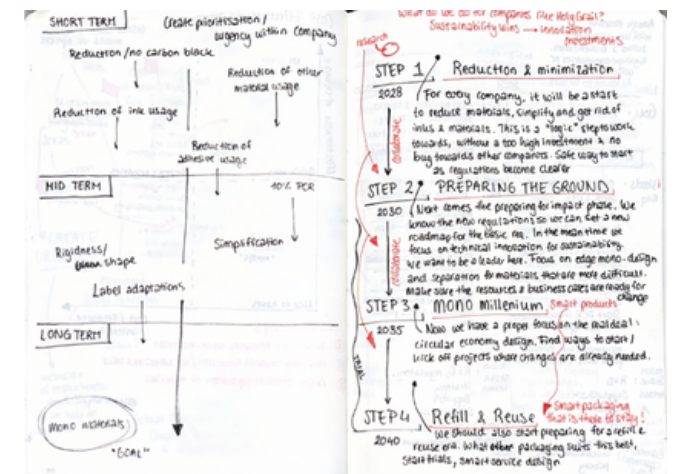 SHORT TERM
Create prioritisation /
urgency within company
Reduction/no carbon black
Reduction of other
material usage
Reduction of ink usage
Reduction of
adhesive usage
MID TERM
10% PCR
Simplification
Rigidness/
shape
Label adaptations
LONG TERM
mono materials
"GOAL"
What do we do for companies like Holy Grail?
Sustainability wins → innovation
investments
research
STEP 1
Reduction & minimization
2028
For every company, it will be a start
to reduce materials, simplify and get rid of
inks & materials. This is a "logic" step to work
towards, without a too high investment & no
bug towards other companies. Safe way to start
as regulations become clearer
collaborate
STEP 2
PREPARING THE GROUND
2030
Next comes the preparing for impact phase. We
know the new regulations so we can set a new
roadmap for the basic req. In the mean time we
focus on technical innovation for sustainability.
We want to be a leader here. Focus on edge mono-design
and separation for materials that are more difficult.
Make sure the resources & business cases are ready for
change
collaborate
STEP 3
MONO Millenium
Smart products
2035
Now we have a proper focus on the real deal:
circular economy design. Find ways to start/
kick off projects where changes are already needed.
TRIAL
STEP 4
Refill & Reuse
Smart packaging
that is there to stay!
2040
We should also start preparing for a refill &
reuse era. What other packaging suits this best,
start trials, smart service design